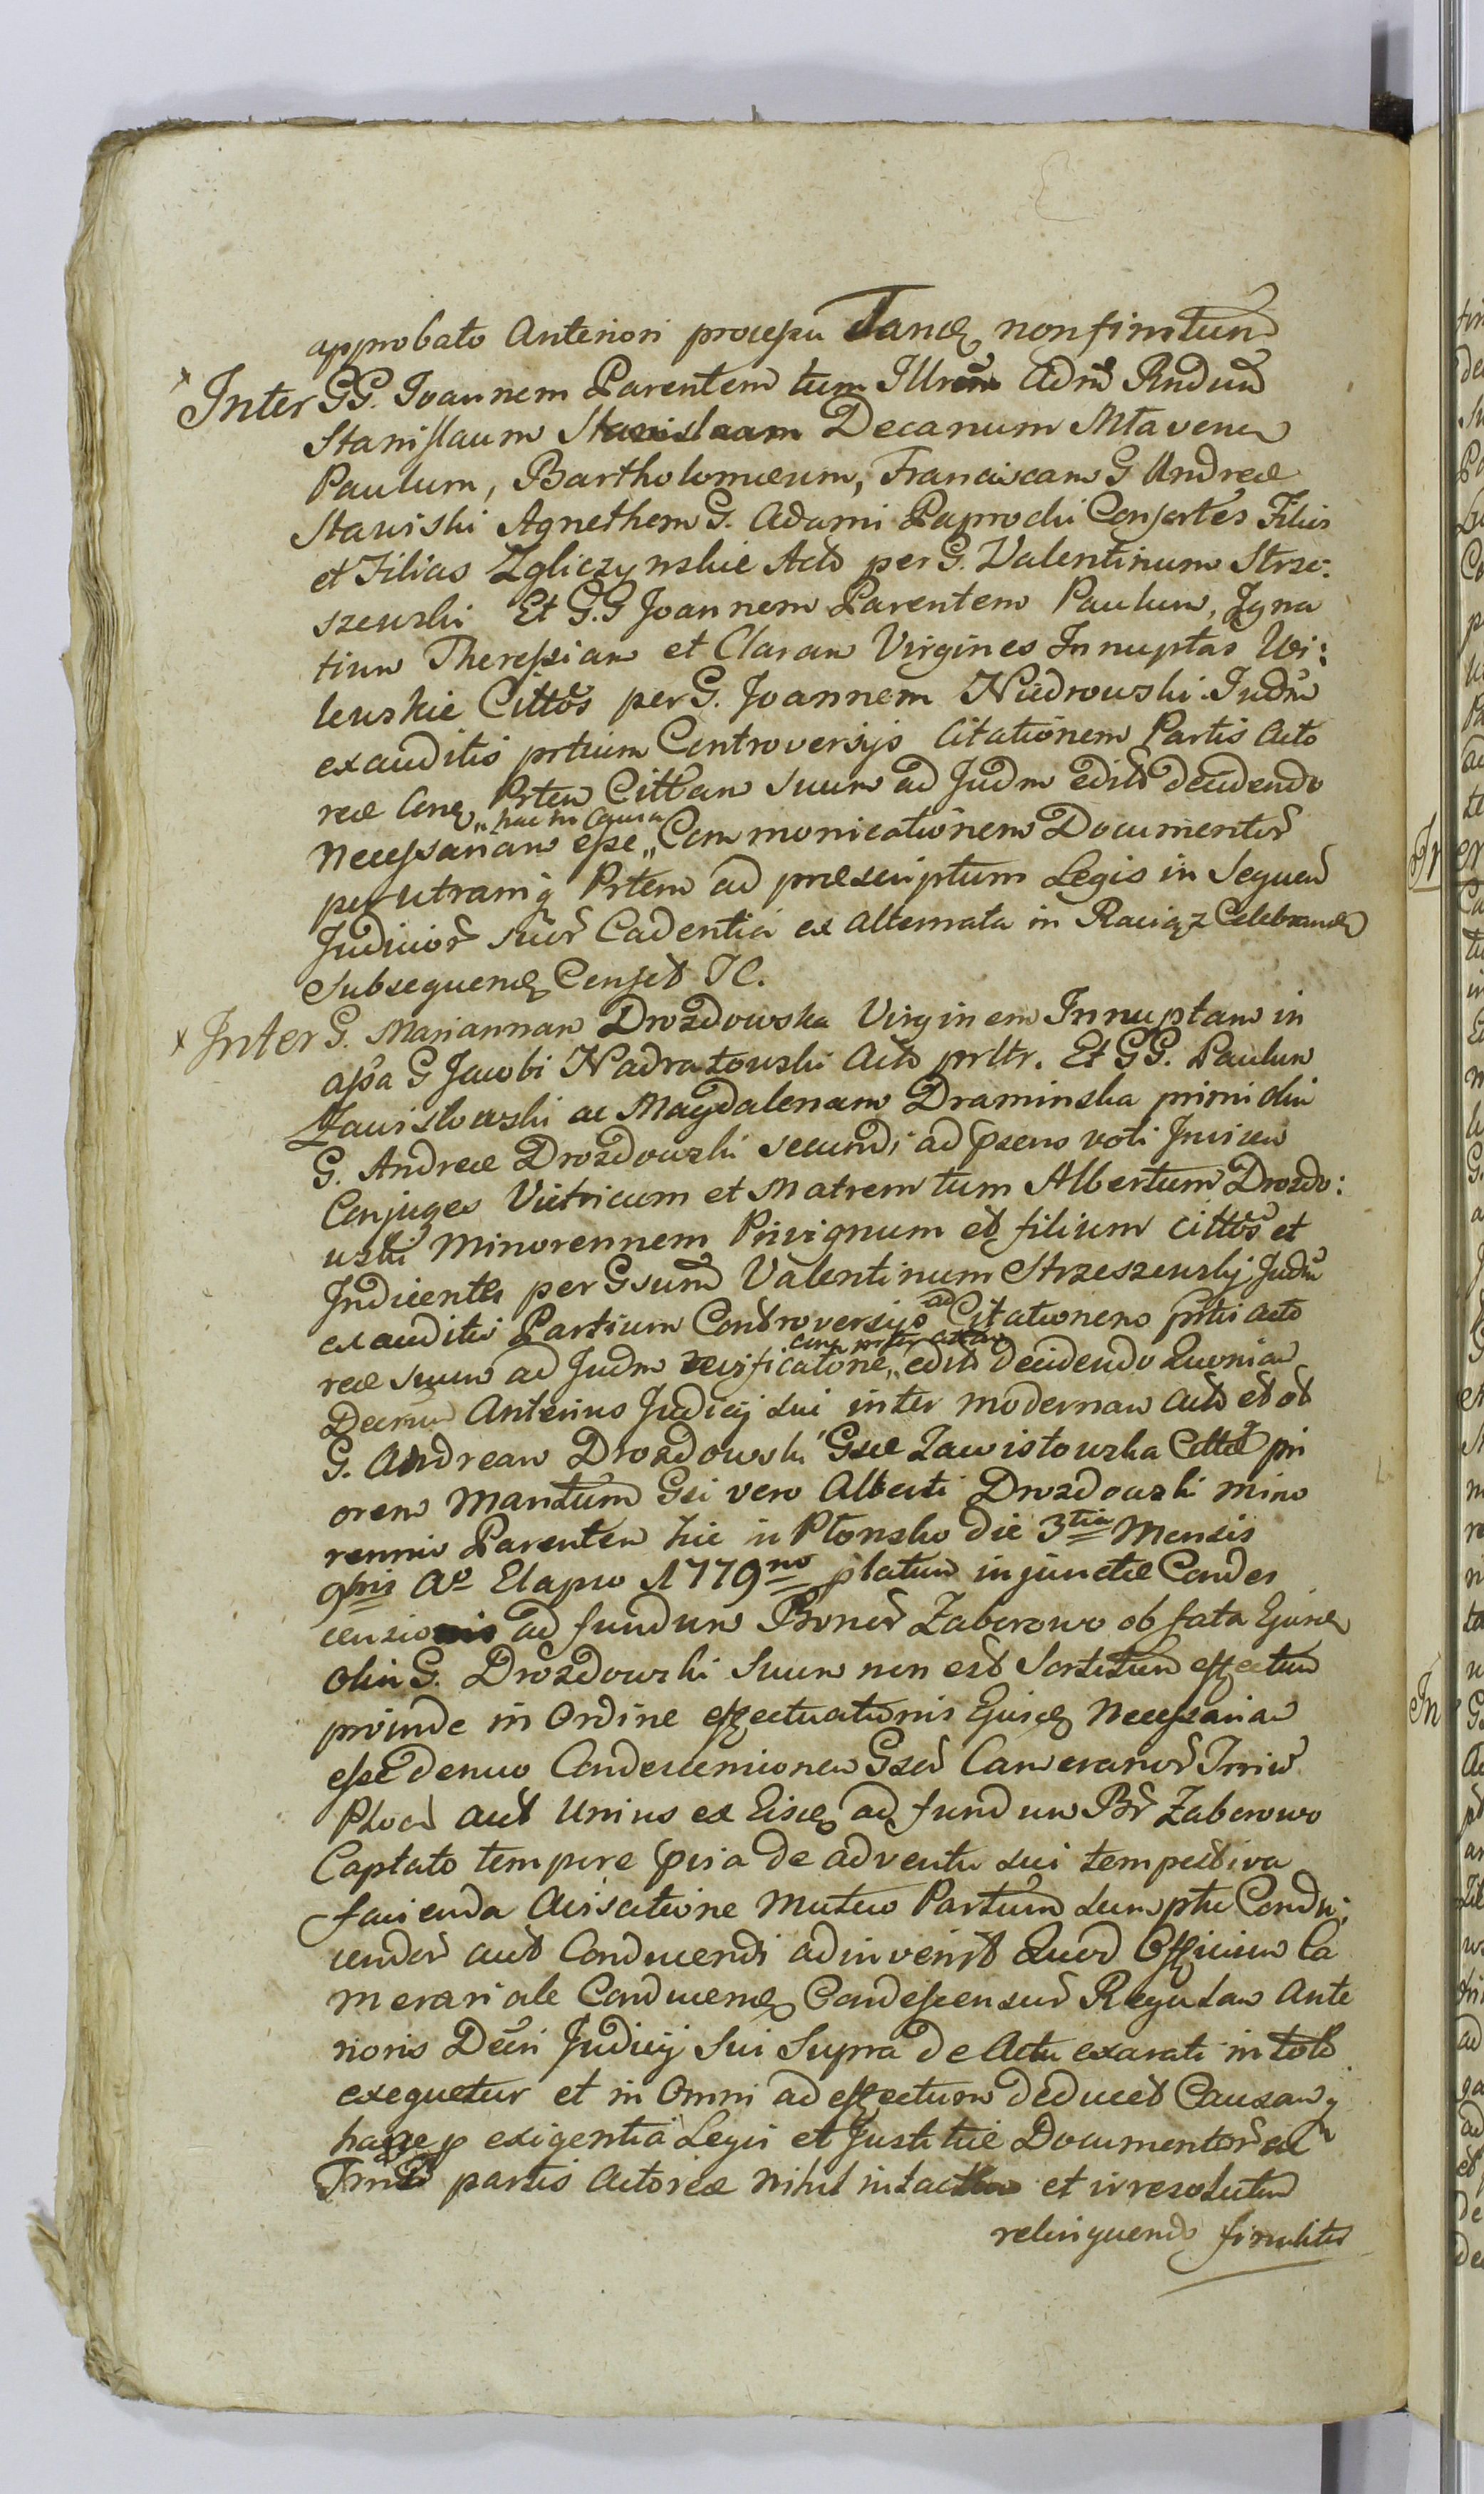 approbato Anteriori processu Tandē non finitum
Inter GG. Joannem Parentem tum Illrem Adm Rndum
Stanislaum Stanislaum Decanum Mlavens
Paulum, Bartholomeum, Franciscam G Andreæ
Stawiski Agnethem G. Adami Paprocki Consortes Filios
et Filias Zgliczynskie Acto per G. Valentinum Strze:
szewski Et G.G Joannem Parentem Paulum, Igna
tium Theressiam et Claram Virgines Innuptas Wi:
lewskie Cittos per G. Joannem Niedrowski Judm
exauditis prtium Controversijs Citationem Partis Acto
reæ Prtem Cittam suum ad Judm edito decidendo
Necessariam esse „hac in Causa„ Communicationem Documentor
per utramq Prtem ad præscriptum Legis in Sequen
Judicior suor Cadentia ex Alternata in Raciąz Celebrand
Subsequend Censet JC.
Inter G. Mariannam Drozdowska Virginem Innuptam in
assa G Jacobi Nadratowski Acto prltr. Et GG. Paulum
Zawistowski ac Magdalenam Draminska primi olim
G. Andreæ Drozdowski secundi ad psens voti Invicem
Conjuges Vitricum et Matrem tum Albertum Drozdo:
wski Minorennem Privignum et filium Cittos et
Indicentes per Gsum Valentinum Strzeszewskij Judm
exauditis Partium Controversijs ad Citationem prtis Acto
reæ suum ad Judm verificatione, edito decidendo Quoniam
Decrum Anterius Judicij sui inter modernam Acto et ot
G. Andream Drozdowski Gsæ Zawistowska Cittæ pri
orem Maritum Gsi vero Alberti Drozdowski mino
rennis Parentem hic in Płonsko die 3tia Mensis
9bris Ao Elapso 1779no platum injunctæ Condes
censionis ad fundum Bonor Zaborowo ob fata Ejusd
olim G. Drozdowski Suum non est Sortitum effectum
proinde in Ordine effectuationis Ejusd Necessariam
esse denuo Condescensionem Gsor Camerarior Trrium
Plocen aut Unius ex Eisd ad fundum Br Zaborowo
Captato tempore psia de adventu sui tempestiva
facienda Avisatione Mutuo Partium sumptu Condu:
cendor aut Conducendi adinvenit Quod Officium Ca
merariale Conducend Condescensur Regulam Ante
rioris Decri Judicij Sui Supra de Actu exarati in toto
exequetur et in Omni ad effectum deducet Causamq
hancce p exigentia Legis et Justitiæ Documentor ac
partis Actoreæ Nihil intactum et irresolutum
relinquendo finaliter